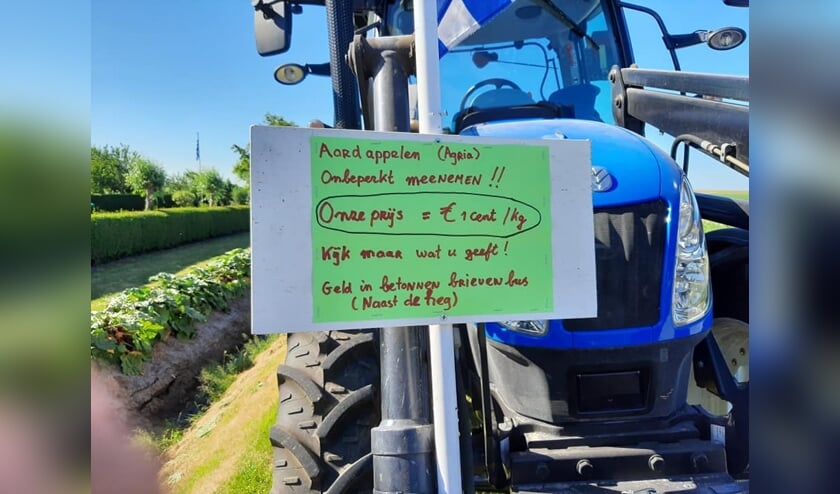 Aardappelen (Agria)
Onbeperkt MEENEMEN !!
Onze prijs = € 1 cent /kg
Kijk maar wat u geeft!
Geld in betonnen brievenbus
(Naast de heg)